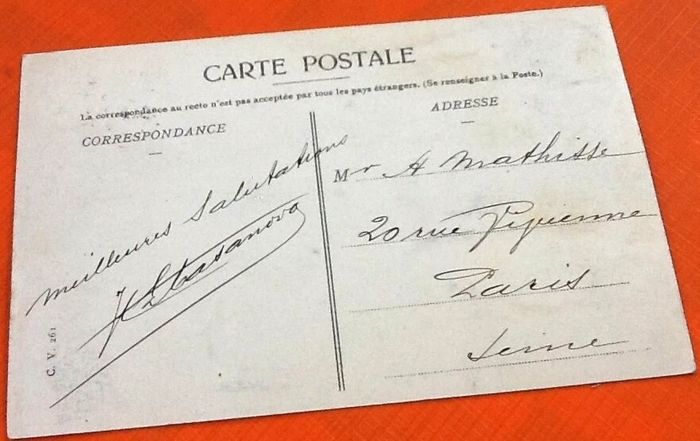 CARTE POSTALE
La correspondance au recto n'est pas acceptée par tous les pays étrangers. (Se renseigner à la Poste.)
CORRESPONDANCE
meilleures Salutations
Casanova
C. V. 261
ADRESSE
Mr A Mathisse
20 rue
Paris
Seine